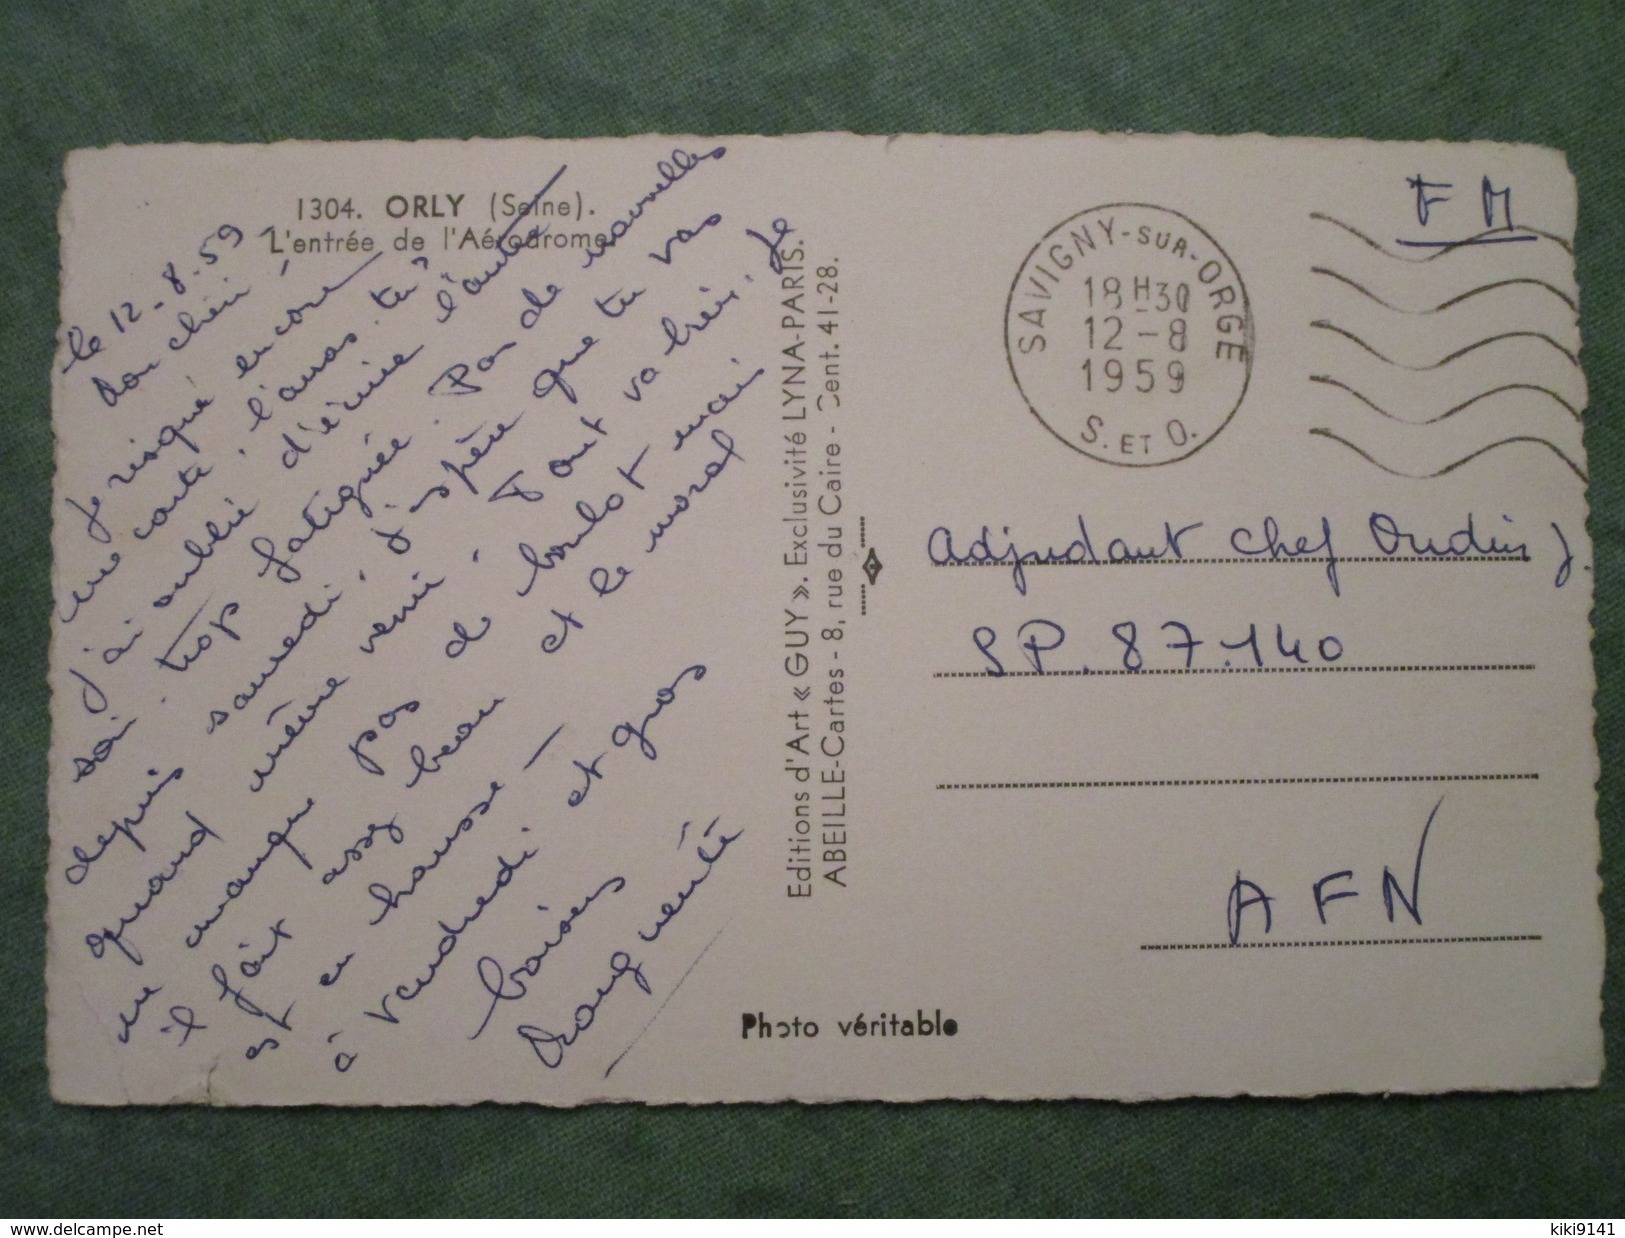 1304. ORLY (Seine).
L'entrée de l'Aérodrome
le 12-8-59
Mon chéri,
Je risque encore
une carte, l'auras-tu?
J'ai oublié d'écrire l'autre
soir. trop fatiguée. Pas de nouvelles
depuis samedi, j'espère que tu vas
quand même venir. Tout va bien. Je
ne manque pas de boulot mais
il fait assez beau et le moral
est en hausse -
à vendredi et gros
baisers
Marguerite
Editions d'Art « GUY ». Exclusivité LYNA-PARIS.
ABEILLE-Cartes - 8, rue du Caire - Cent. 41-28.
Photo véritable
F M
SAVIGNY-SUR-ORGE
18H30
12-8
1959
S. ET O.
Adjudant Chef Oudin J.
SP. 87.140
AFN
www.delcampe.net
kiki9141